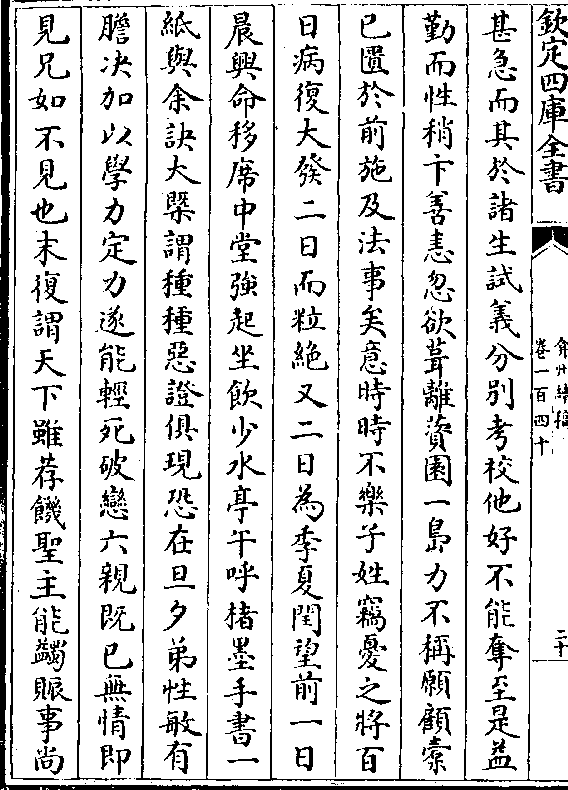 欽定四庫全書
弇州續稿
卷一百四十
二十
甚急而其於諸生試義分別考校他好不能奪至是益
勤而性稍卞善恚忽欲葺離薋園一島力不稱願顧橐
已匱於前施及法事矣意時時不樂子姓竊憂之將百
日病復大發二日而粒絶又二日為季夏閏望前一日
晨興命移席中堂強起坐飲少水亭午呼楮墨手書一
紙與余訣大槩謂種種惡證俱現恐在旦夕弟性敏有
膽決加以學力定力遂能輕死破戀六親既已無情即
見兄如不見也末復謂天下雖荐饑聖主能蠲賑事尚